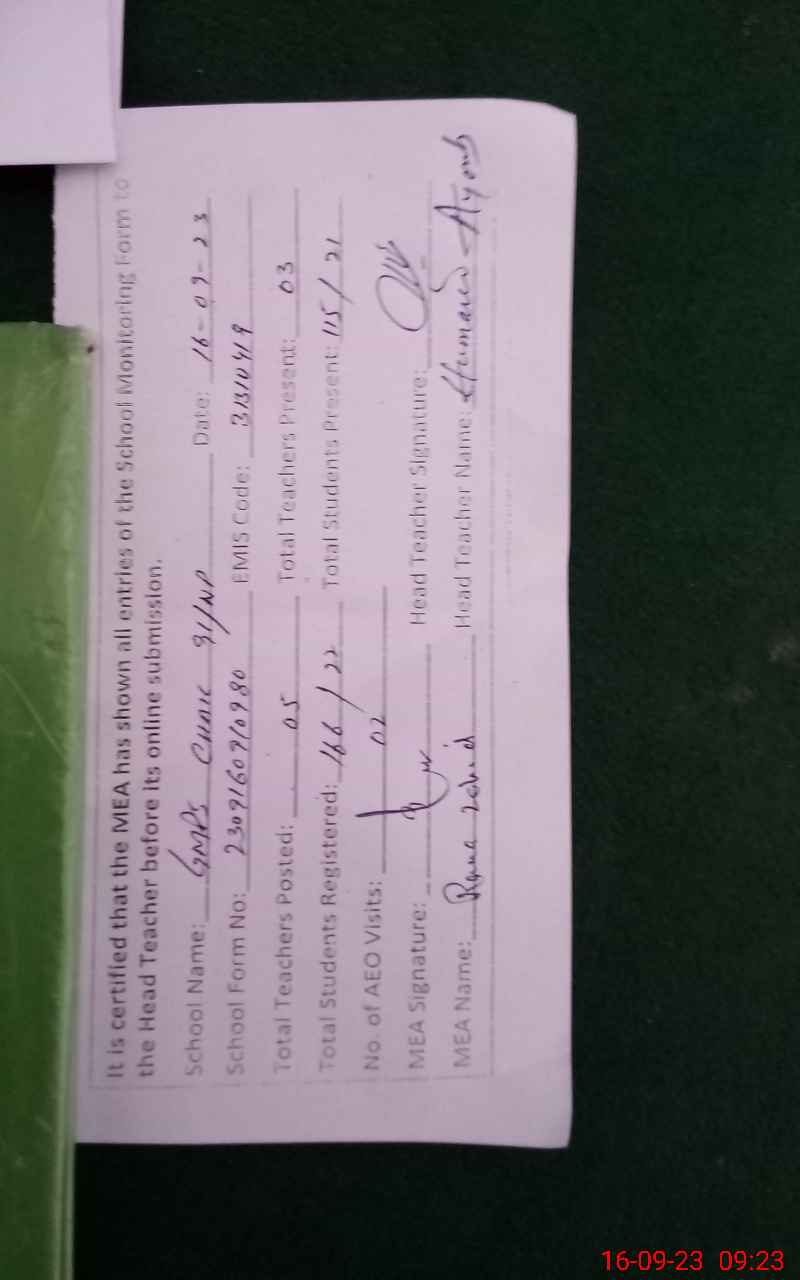 It is certified that the MEA has shown all entries of the School Monitoring Form to
the Head Teacher before its online submission.
School Name: GMPS Chak 91/NP Date: 16-09-23
School Form No: 23091609210980 EMIS Code: 31310419
Total Teachers Posted: 05 Total Teachers Present: 03
Total Students Registered: 166/22 Total Students Present: 115/21
No. of AEO Visits: 02
MEA Signature: Head Teacher Signature:
MEA Name: Rana Zahid Head Teacher Name: Humaira Ayoub
16-09-23 09:23